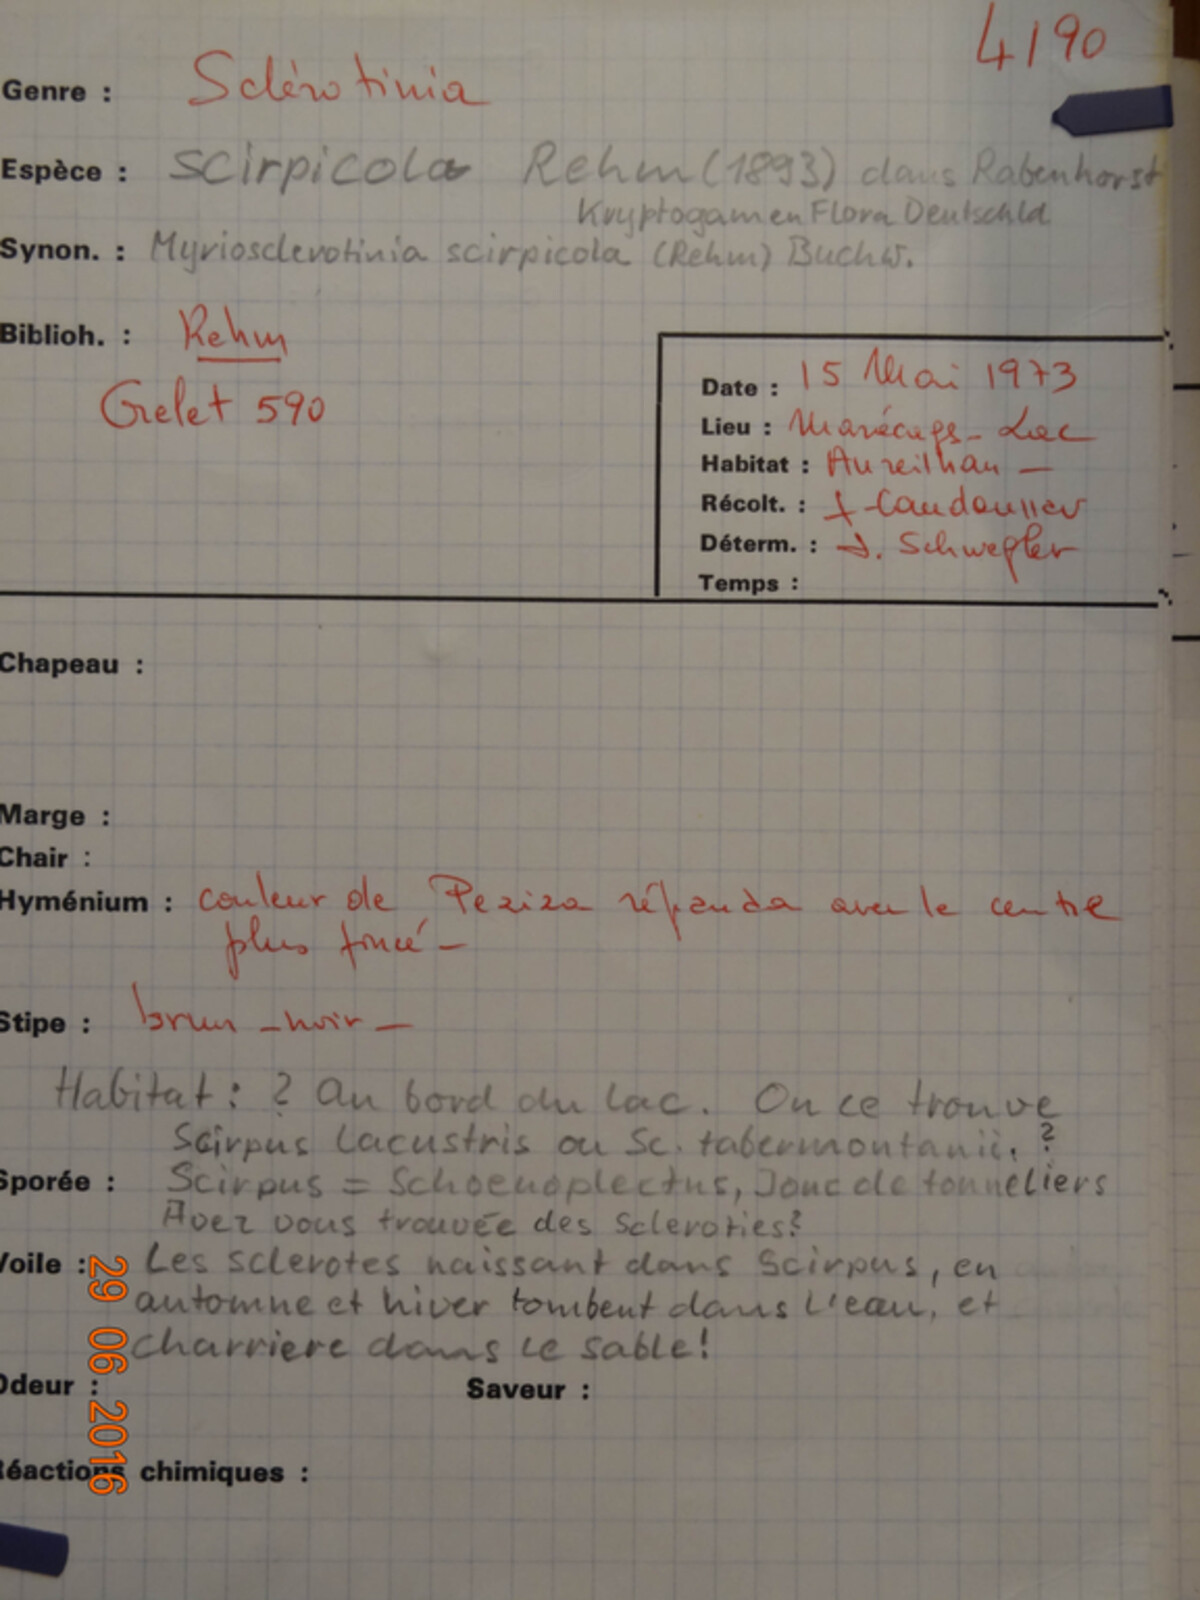 4190
Genre : Sclérotinia
Espèce : scirpicola Rehm (1893) dans Rabenhorst
Kryptogamen Flora Deutschld
Synon. : Myriosclerotinia scirpicola (Rehm) Buchw.
Biblioh. : Rehm
Grelet 590
Date : 15 Mai 1973
Lieu : Marécages - Lac
Habitat : Aureilhan —
Récolt. :
Déterm. : J. Schwegler
Temps :
Chapeau :
Marge :
Chair :
Hyménium : couleur de Peziza répanda avec le centre
plus foncé -
Stipe : brun - noir -
Habitat : ? Au bord du lac. On ce trouve
Scirpus lacustris ou Sc. tabermontanii. ?
Sporée : Scirpus = Schoenoplectus, Jonc de tonneliers
Avez vous trouvée des scleroties?
Voile : Les sclerotes naissant dans Scirpus, en
automne et hiver tombent dans l'eau, et
charriere dans le sable!
Odeur : Saveur :
Réactions chimiques :
29 06 2016